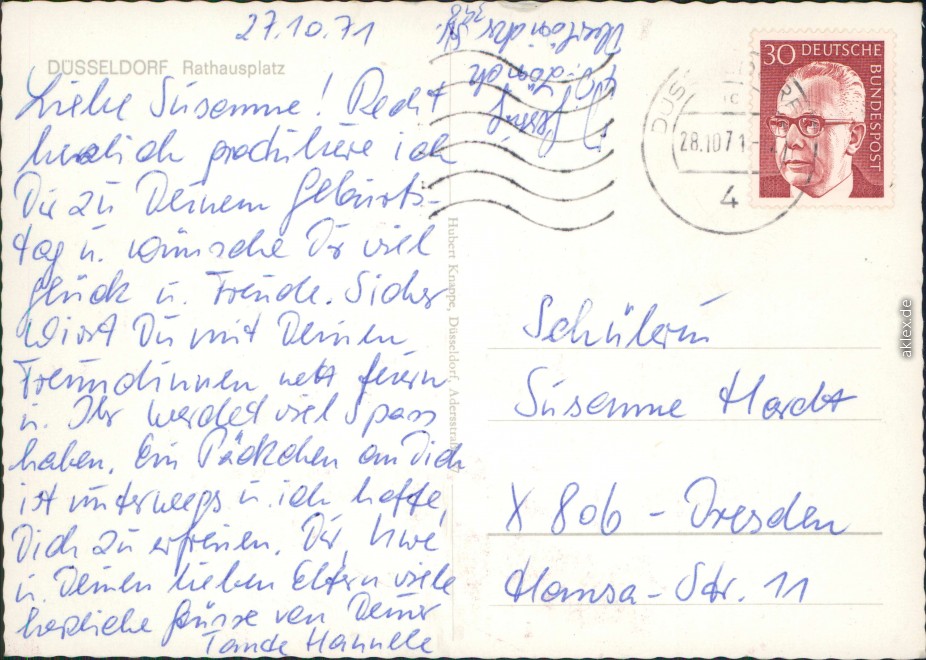 27.10.71
DÜSSELDORF Rathausplatz
Liebe Susanne! Recht
herzlich gratuliere ich
Dir zu Deinem Geburts-
tag u. wünsche Dir viel
Glück u. Freude. Sicher
wirst Du mit Deinen
Freundinnen nett feiern
u. Ihr werdet viel Spass
haben. Ein Päckchen an Dich
ist unterwegs u. ich hoffe,
Dich zu erfreuen. Dir, Uwe
u. Deinen lieben Eltern viele
herzliche Grüsse von Deiner
Tante Hannelle
Hubert Knappe, Düsseldorf, Adersstraße
30 DEUTSCHE
BUNDESPOST
28.10.71
4
Schülerin
Susanne Hardt
X 806 - Dresden
Hansa-Str. 11
aklex.de